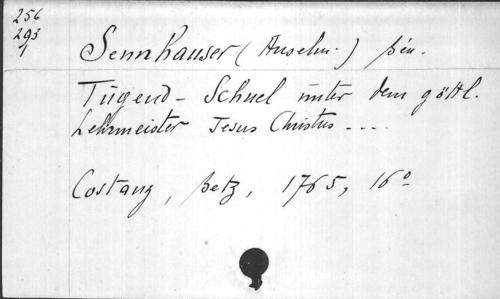 256
293
1
Sennhauser (Anselm.) sén.
Tugend - Schuel unter dem göttl.
Lehrmeister Jesus Christus ----
Costanz, Betz, 1765, 16°